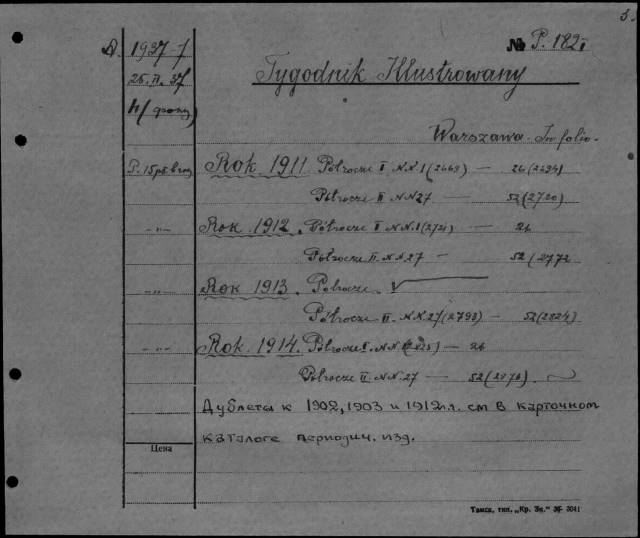 3.
А. 1937-7 № P. 182 I
25. II. 37 Tygodnik Illustrowany
н/фонд
Warszawa. In folio.
Р. 15 Rok 1911 Półrocze I N.N. 1 (2669) — 26 (2694)
Półrocze II N.N. 27 — 52 (2720)
-"- Rok 1912. Półrocze I N.N. 1 (2721) — 26
Półrocze II N.N. 27 — 52 (2772
-"- Rok 1913. Półrocze
Półrocze II. N.N. 27 (2799) — 52 (2824)
-"- Rok 1914. Półrocze I. N.N. — 26
Półrocze II N.N. 27 — 52 (2876).
Дублеты к 1902, 1903 и 1912 г.г. см в карточном
Цена каталоге периодич. изд.
Томск, тип. „Кр. Зн." 3041